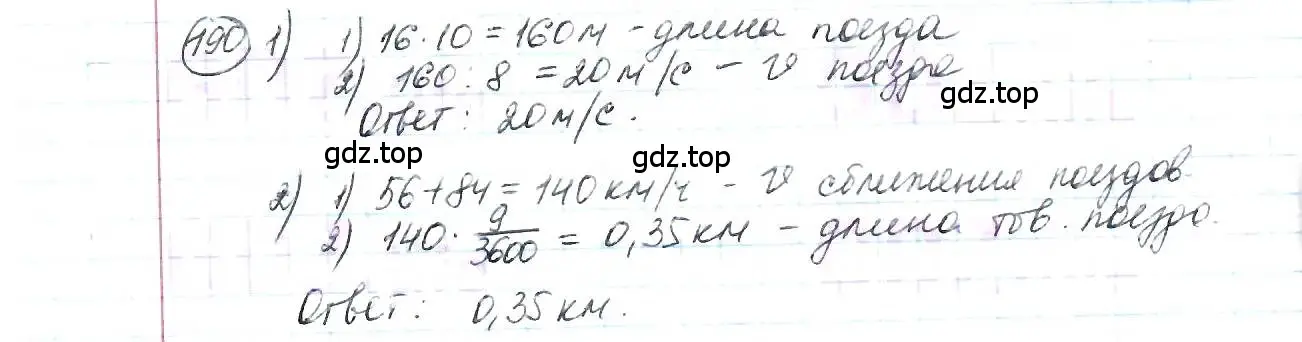 490 1) 1) 16·10 = 160 м - длина поезда
2) 160 : 8 = 20 м/с - v поезда
gdz.top
Ответ: 20 м/с.
gdz.top
gdz.top
2) 1) 56+84 = 140 км/ч - v сближения поездов.
2) 140 · 9/3600 = 0,35 км - длина тов. поезда.
Ответ: 0,35 км.